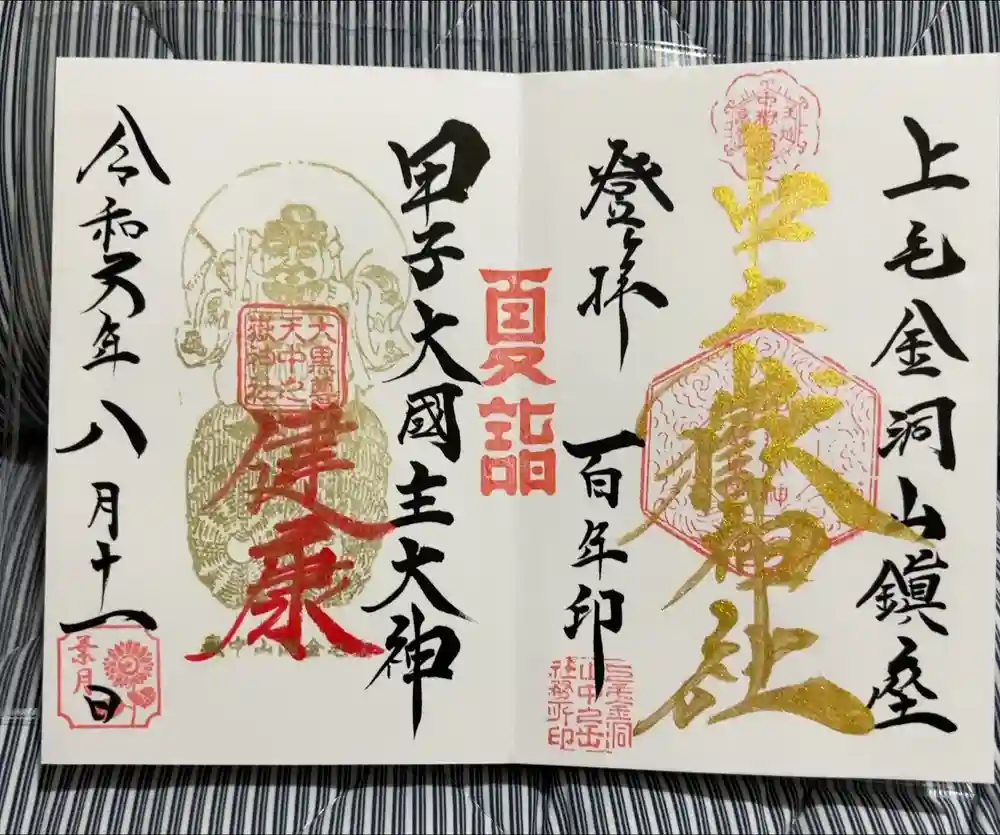 上毛金洞山鎮座
中之嶽神社
登拝
百年印
上毛金洞
山中之岳
社務所印
夏詣
甲子大國主大神
大黒尊
天中之
嶽神社
健康
令和六年八月十一日
葉月